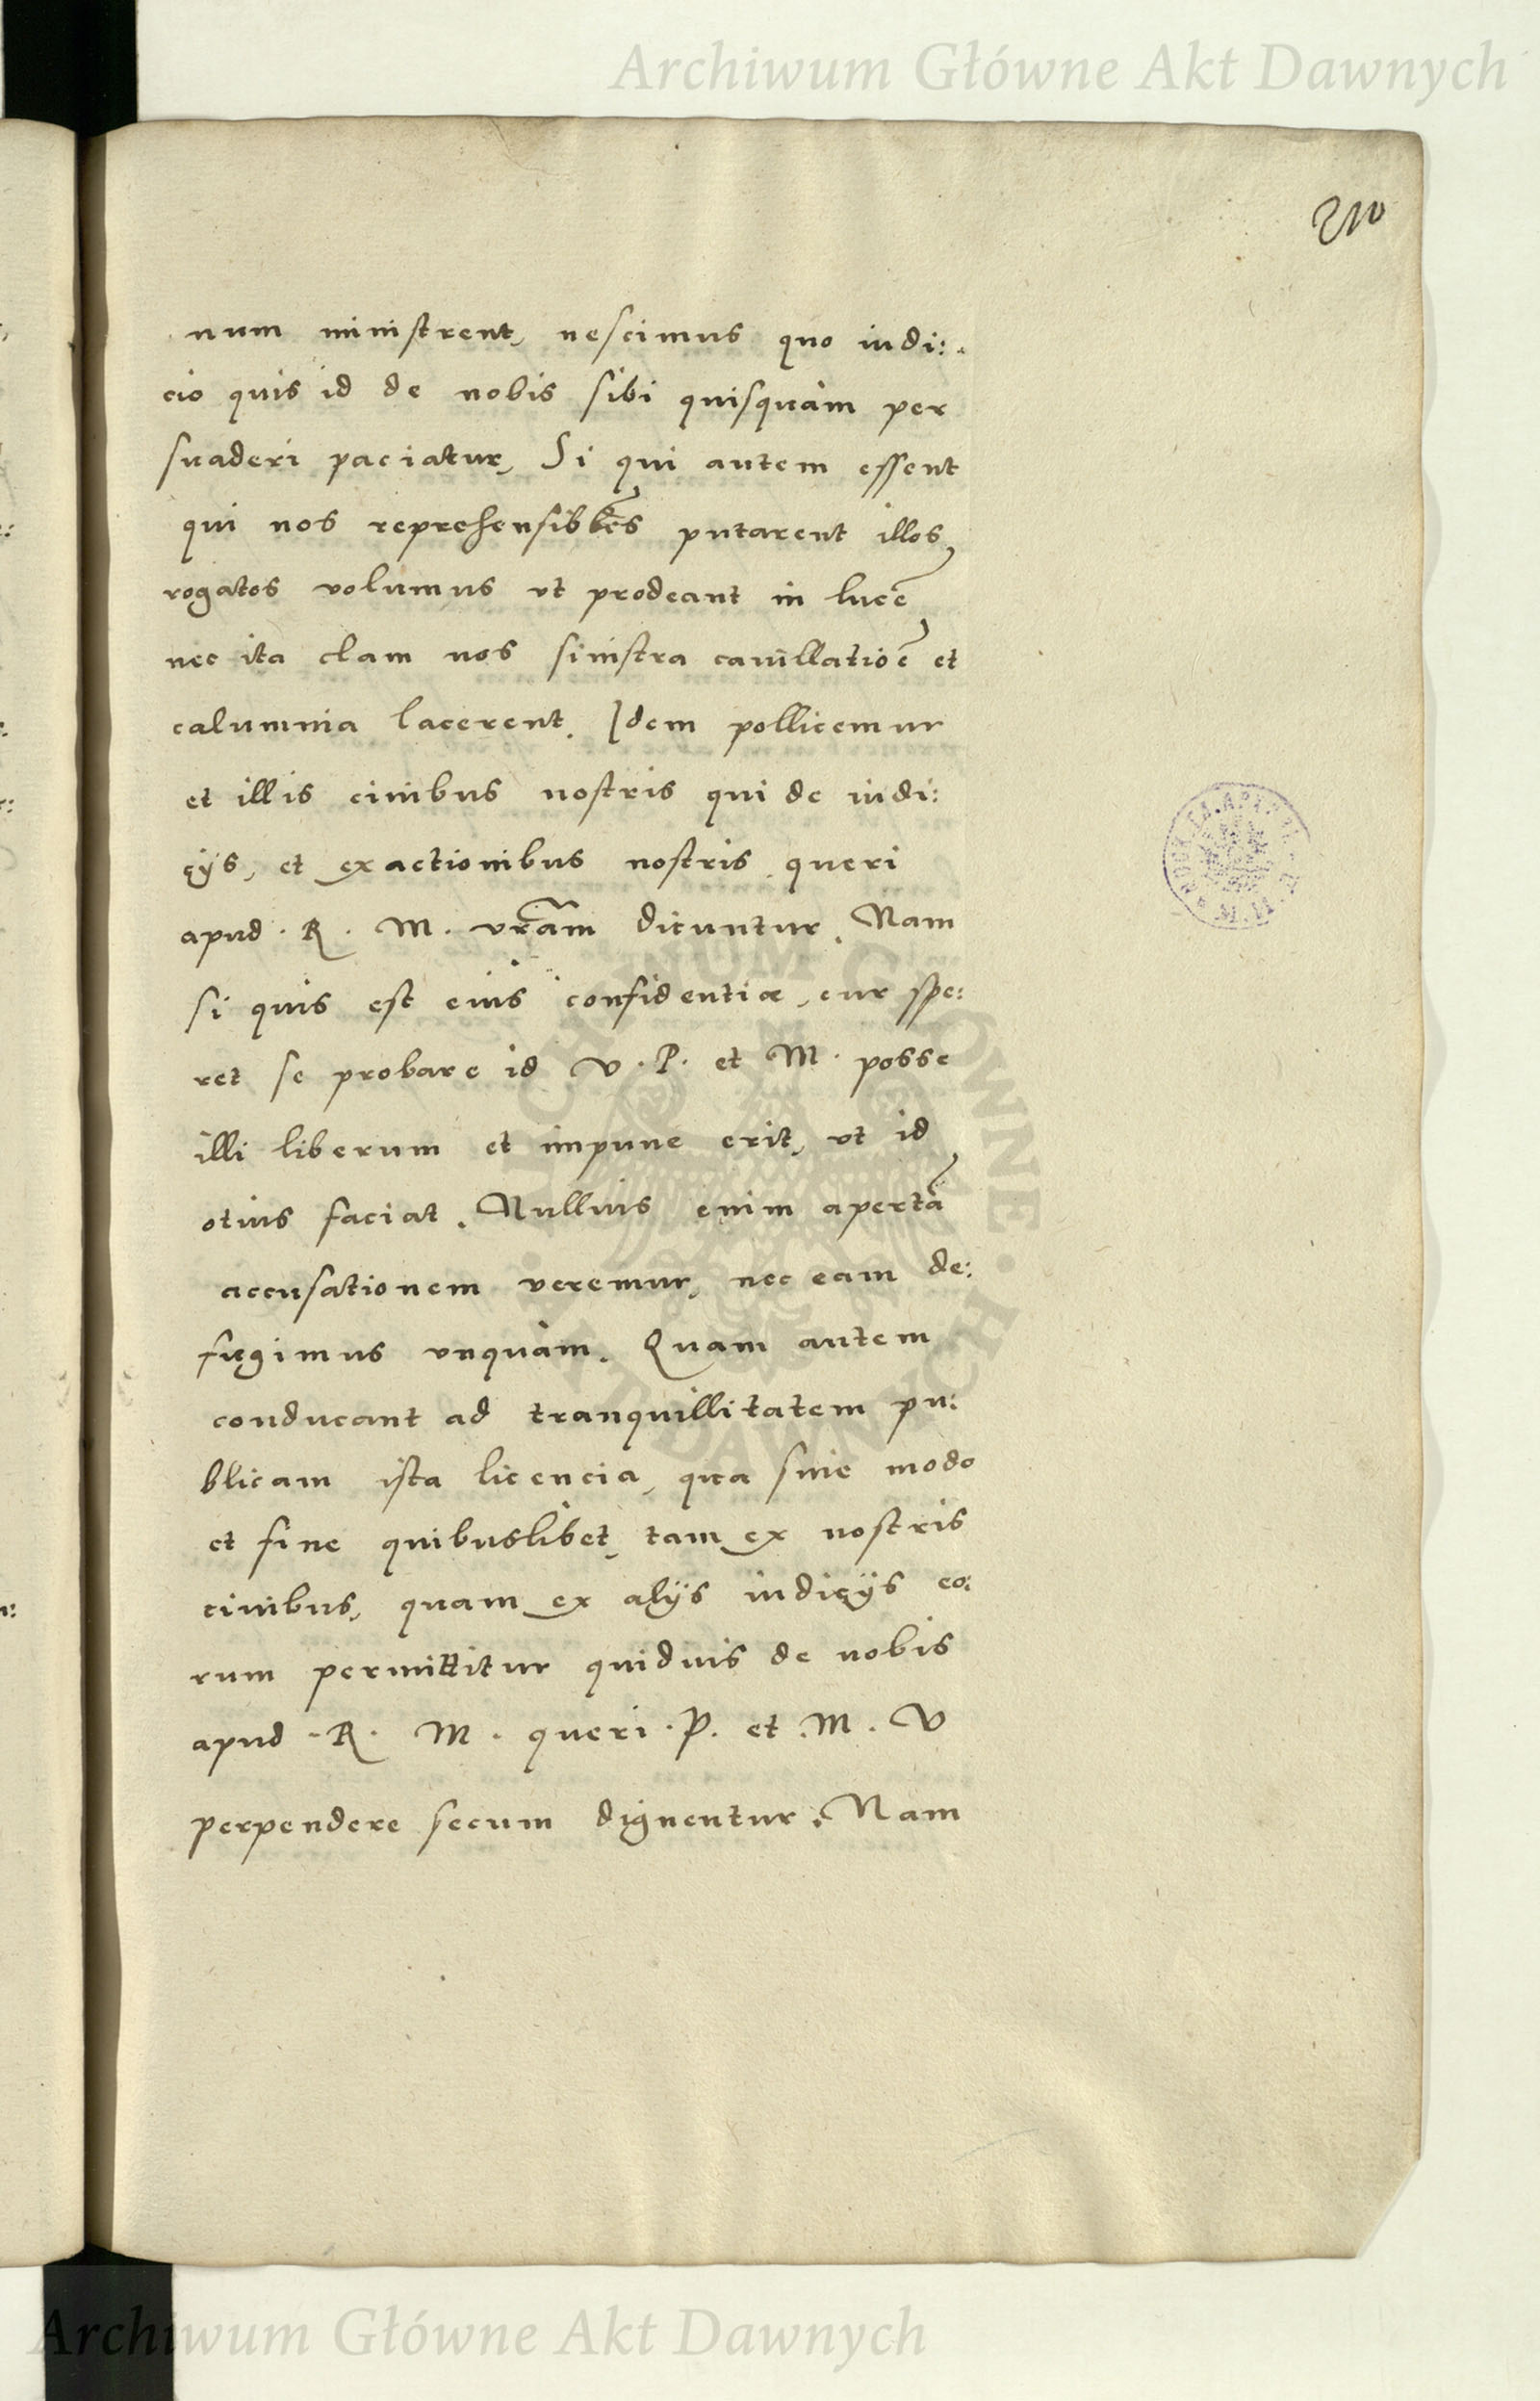 Archiwum Główne Akt Dawnych
210
num ministrent, nescimus quo iudi:
cio quis id de nobis sibi quisquàm per
suaderi paciatur, Si qui autem essent
qui nos reprehensibłes putarent illos
rogatos volumus vt prodeant in lucē
nec ita clam nos sinistra cauillatioē et
calumnia lacerent. Idem pollicemur
et illis ciuibus nostris qui de iudi:
cÿs, et exactionibus nostris queri
apud . R . M . vrām dicuntur. Nam
si quis est eius confidentiæ, cur spe:
ret se probare id V. P. et M. posse
illi liberum et impune erit, vt id
otius faciat. Nullius enim apertā
accusationem veremur, nec eam de:
fugimus vnquàm. Quam autem
conducant ad tranquillitatem pu:
blicam ista licencia, qua sine modo
et fine quibuslibet, tam ex nostris
ciuibus, quam ex alÿs iudicÿs eo:
rum permittitur quiduis de nobis
apud . R . M . queri . P. et . M . V
perpendere secum dignentur. Nam
ARCHIWUM GŁÓWNE
AKT DAWNYCH
Archiwum Główne Akt Dawnych